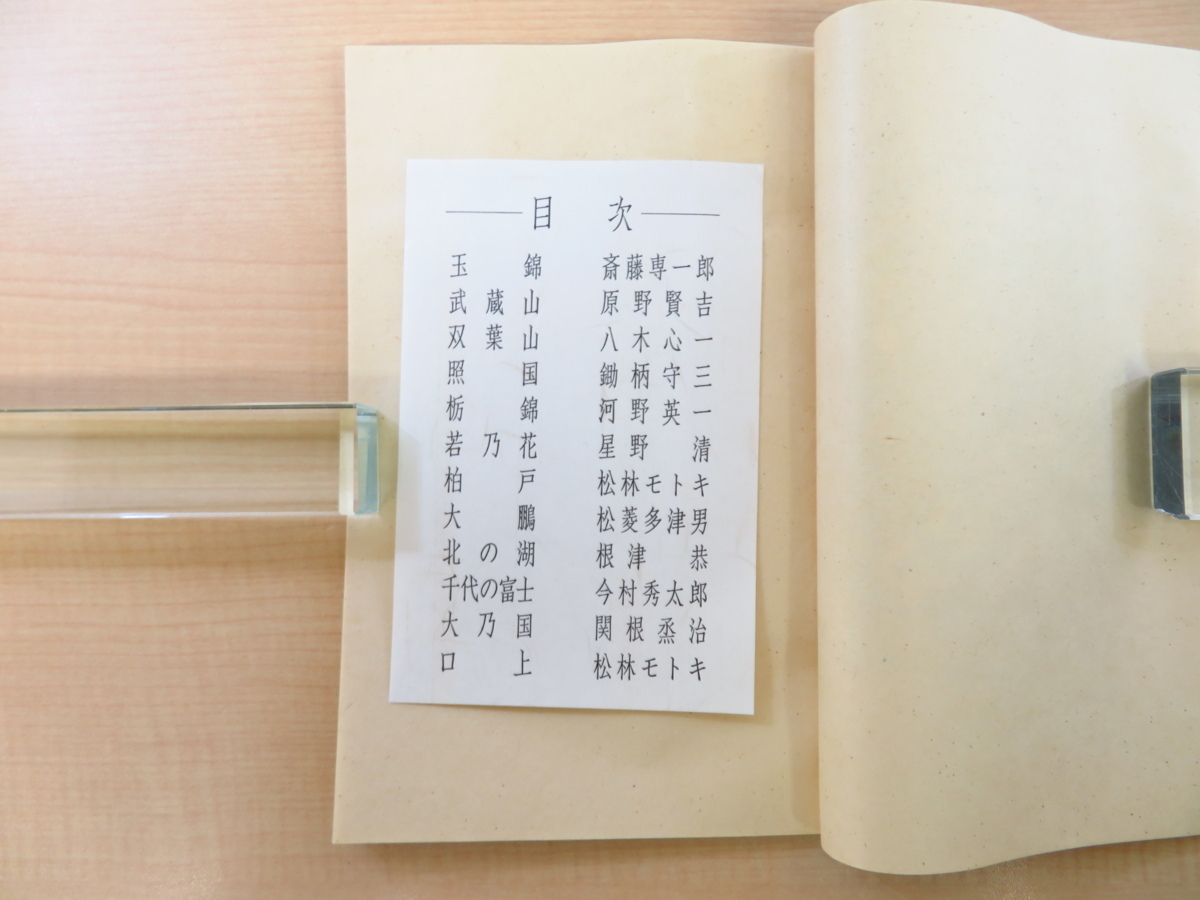 目 次
玉錦 斎藤専一郎
武蔵山 原野賢吉
双葉山 八木心一
照国 鋤柄守三
栃錦 河野英一
若乃花 星野清
柏戸 松林モトキ
大鵬 松菱多津男
北の湖 根津恭
千代の富士 今村秀太郎
大乃国 関根烝治
口上 松林モトキ